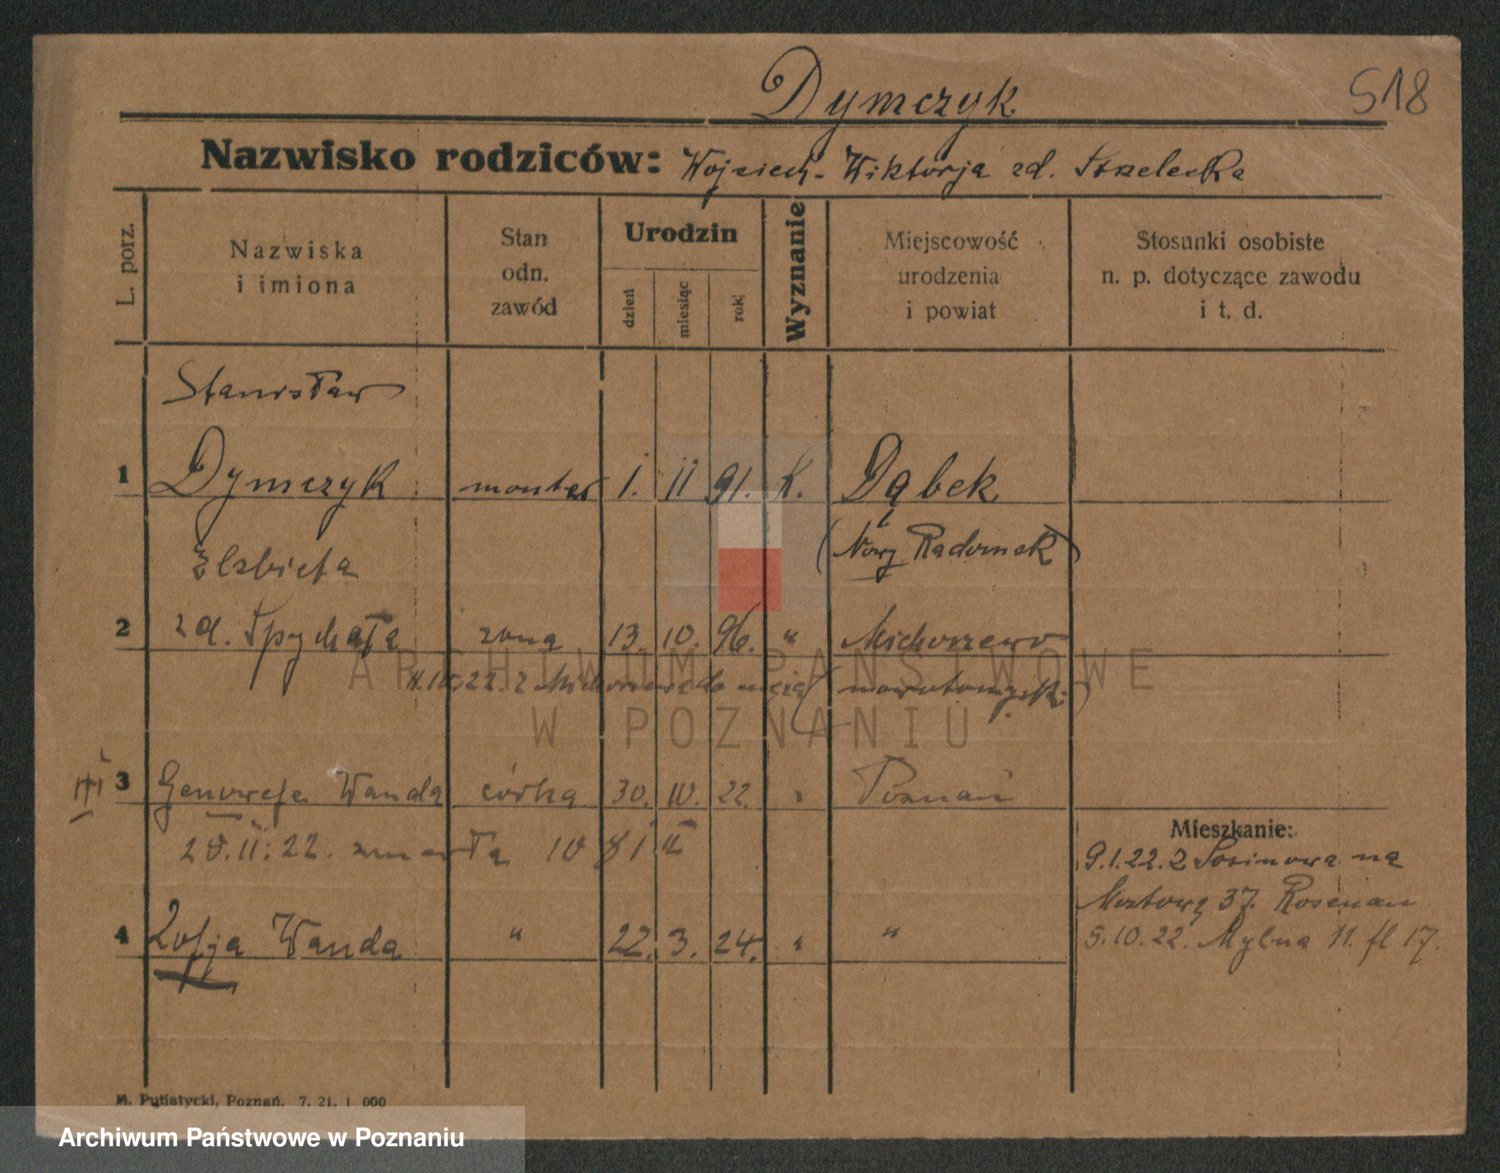 Dymczyk
518
Nazwisko rodziców: Wojciech - Wiktorja zd. Strzelecka
L. porz.
Nazwiska
i imiona
Stan
odn.
zawód
Urodzin
dzień
miesiąc
rok
Wyznanie
Miejscowość
urodzenia
i powiat
Stosunki osobiste
n. p. dotyczące zawodu
i t. d.
Stanisław
1 Dymczyk monter 1. II 91. K. Dąbek
(Nowy Radomsk)
Elzbieta
2 zd. Spychała zona 13. 10. 96. " Michorzewo
22. z Michorzewa do męża (nowotomyski)
3 Genowefa Wanda córka 30. 10. 22. " Poznań
28.11.22. zmarła
4 Zofja Wanda " 22. 3. 24. " "
Mieszkanie:
9.1.22. z Sosinowa na
Mostową 37. Rosenau
9.10.22. Mylna 11. fl 17.
M. Putiatycki, Poznań. 7. 21. 1 000
ARCHIWUM PAŃSTWOWE
W POZNANIU
Archiwum Państwowe w Poznaniu